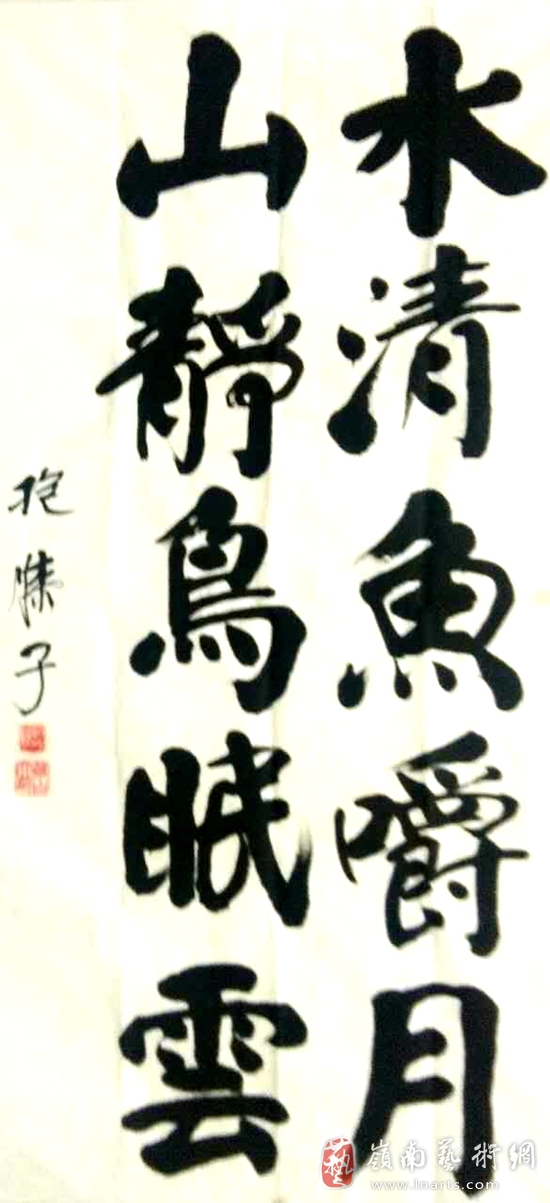 水清魚嚼月
山靜鳥眠雲
子
嶺南藝術網
www.lnarts.com